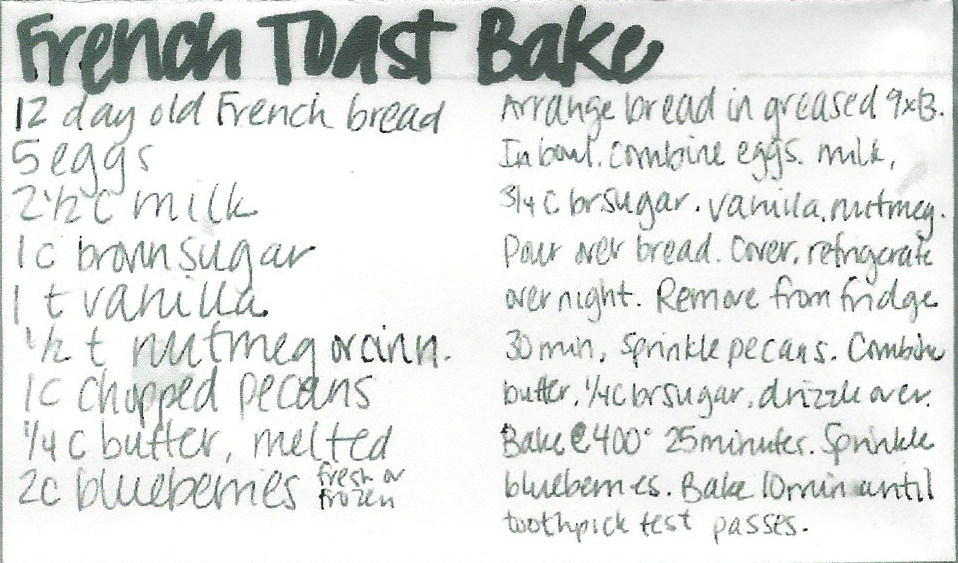 French Toast Bake
12 day old French bread
5 eggs
2 1/2 c milk
1 c brown sugar
1 t vanilla
1/2 t nutmeg or cinn.
1c chopped pecans
1/4 c butter, melted
2c blueberries fresh or frozen
Arrange bread in greased 9x13.
In bowl, combine eggs, milk,
3/4 c brsugar, vanilla, nutmeg.
Pour over bread. Cover, refrigerate
overnight. Remove from fridge
30 min, sprinkle pecans. Combine
butter, 1/4c brsugar, drizzle over.
Bake @ 400° 25 minutes. Sprinkle
blueberries. Bake 10 min until
toothpick test passes.